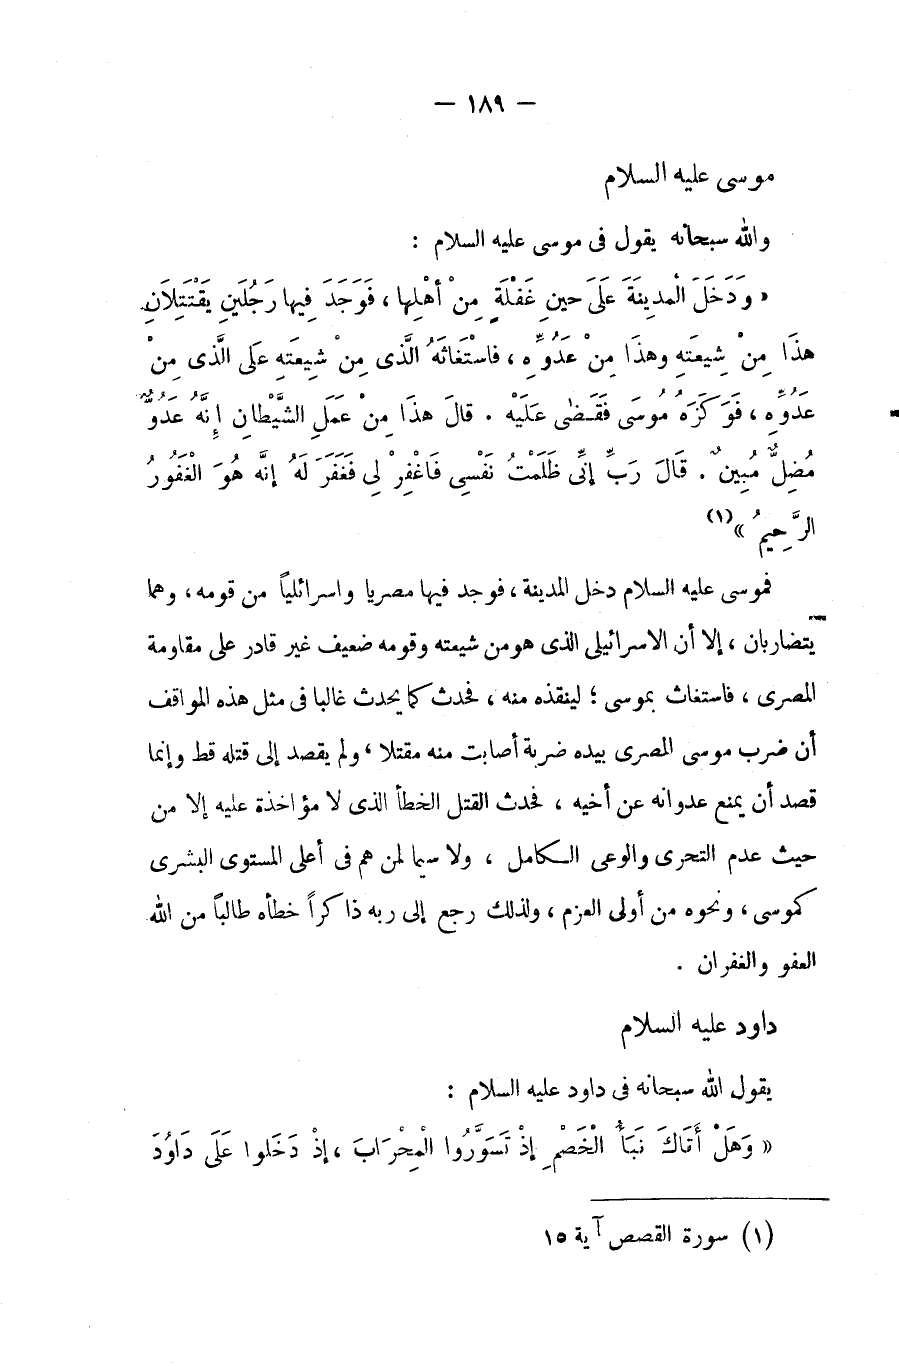 — ١٨٩ —
موسى عليه السلام
والله سبحانه يقول فى موسى عليه السلام :
« وَدَخَلَ الْمدِينَةَ عَلَى حينِ غَفْلَةٍ مِنْ أَهْلِها ، فَوَجَدَ فِيها رَجُلَينِ يَقْتَتِلَانِ
هذَا مِنْ شِيعَتِهِ وهذَا مِنْ عَدُوِّه ، فاسْتَغَاثَهُ الَّذى مِنْ شِيعَتِهِ عَلَى الَّذى مِنْ
عَدُوِّه ، فَوَكَزَهُ مُوسَى فَقَضٰى عَلَيْه . قالَ هذَا مِنْ عَمَلِ الشَّيْطانِ إِنَّهُ عَدُوٌّ
مُضِلٌّ مُبِينٌ . قَالَ رَبِّ إِنِّى ظَلَمْتُ نَفْسِى فَاغْفِرْ لِى فَغَفَرَ لَهُ إنَّه هُوَ الْغَفُورُ
الرَّحِيمُ »(١)
فموسى عليه السلام دخل المدينة ، فوجد فيها مصريا واسرائلياً من قومه ، وهما
يتضاربان ، إلا أن الاسرائيلى الذى هو من شيعته وقومه ضعيف غير قادر على مقاومة
المصرى ، فاستغاث بموسى ؛ لينقذه منه ، فحدث كما يحدث غالبا فى مثل هذه المواقف
أن ضرب موسى المصرى بيده ضربة أصابت منه مقتلا ، ولم يقصد إلى قتله قط وإنما
قصد أن يمنع عدوانه عن أخيه ، فحدث القتل الخطأ الذى لا مؤاخذة عليه إلا من
حيث عدم التحرى والوعى الكامل ، ولا سيما لمن هم فى أعلى المستوى البشرى
كموسى ، ونحوه من أولى العزم ، ولذلك رجع إلى ربه ذاكراً خطأه طالباً من الله
العفو والغفران .
داود عليه السلام
يقول الله سبحانه فى داود عليه السلام :
« وَهَلْ أَتَاكَ نَبَأُ الْخَصْمِ إذْ تَسَوَّرُوا الْمِحْرَابَ ، إذْ دَخَلوا عَلَى دَاوُدَ
(١) سورة القصص آية ١٥